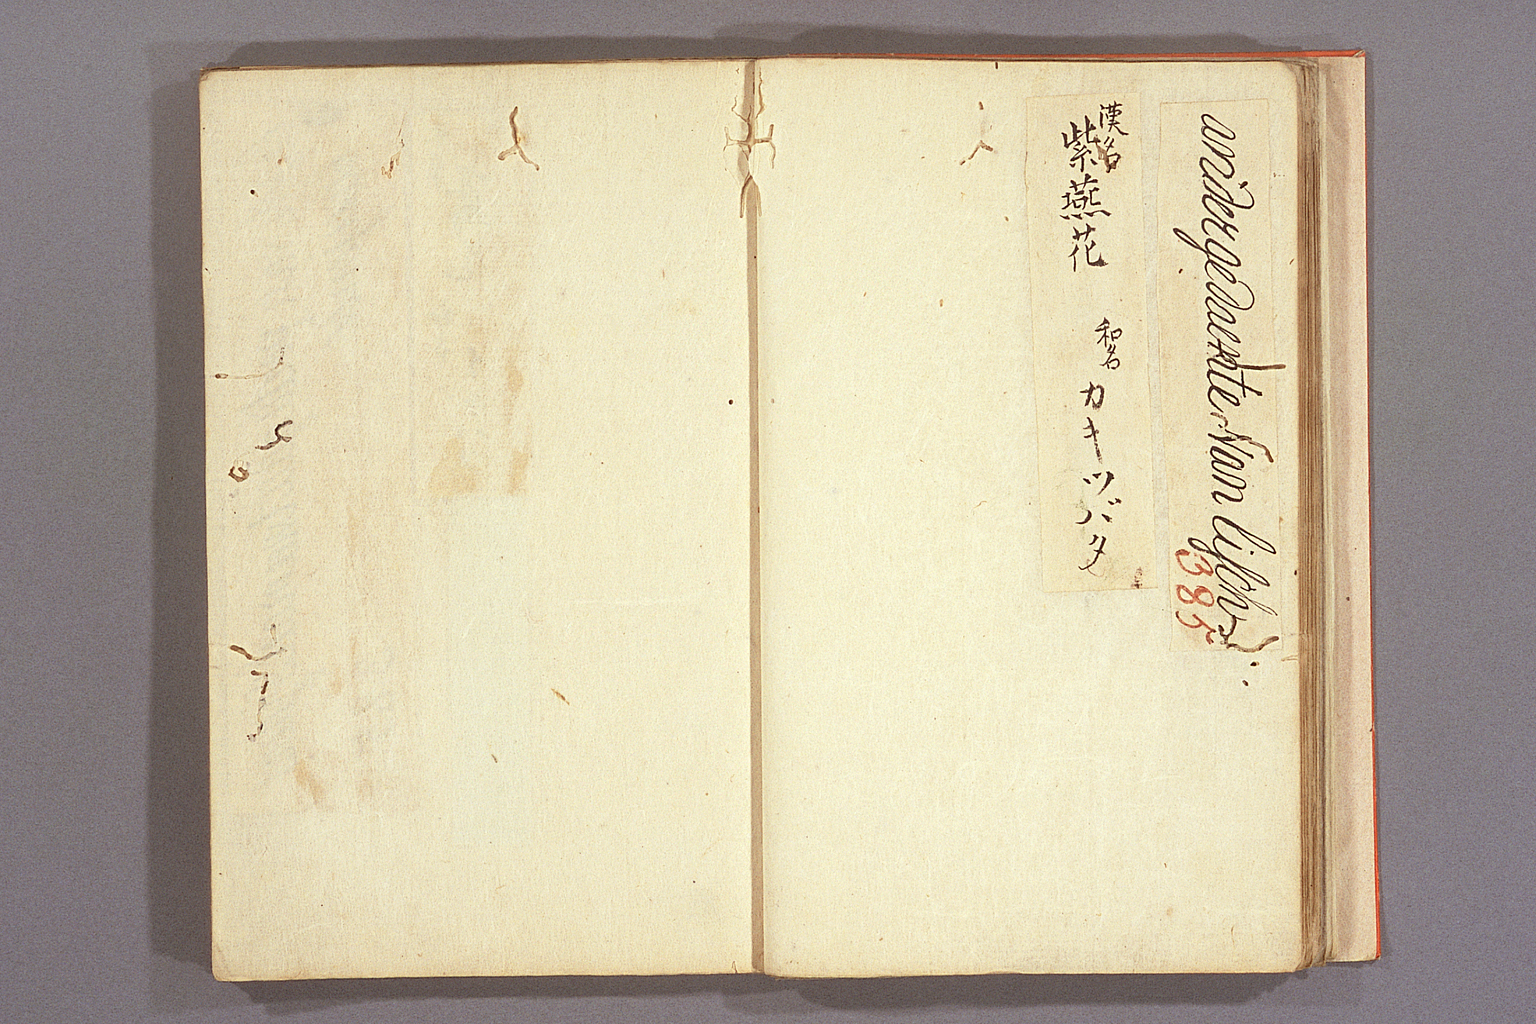 ander gedaente Van lisch
385
漢名
紫燕花
和名
カキツバタ